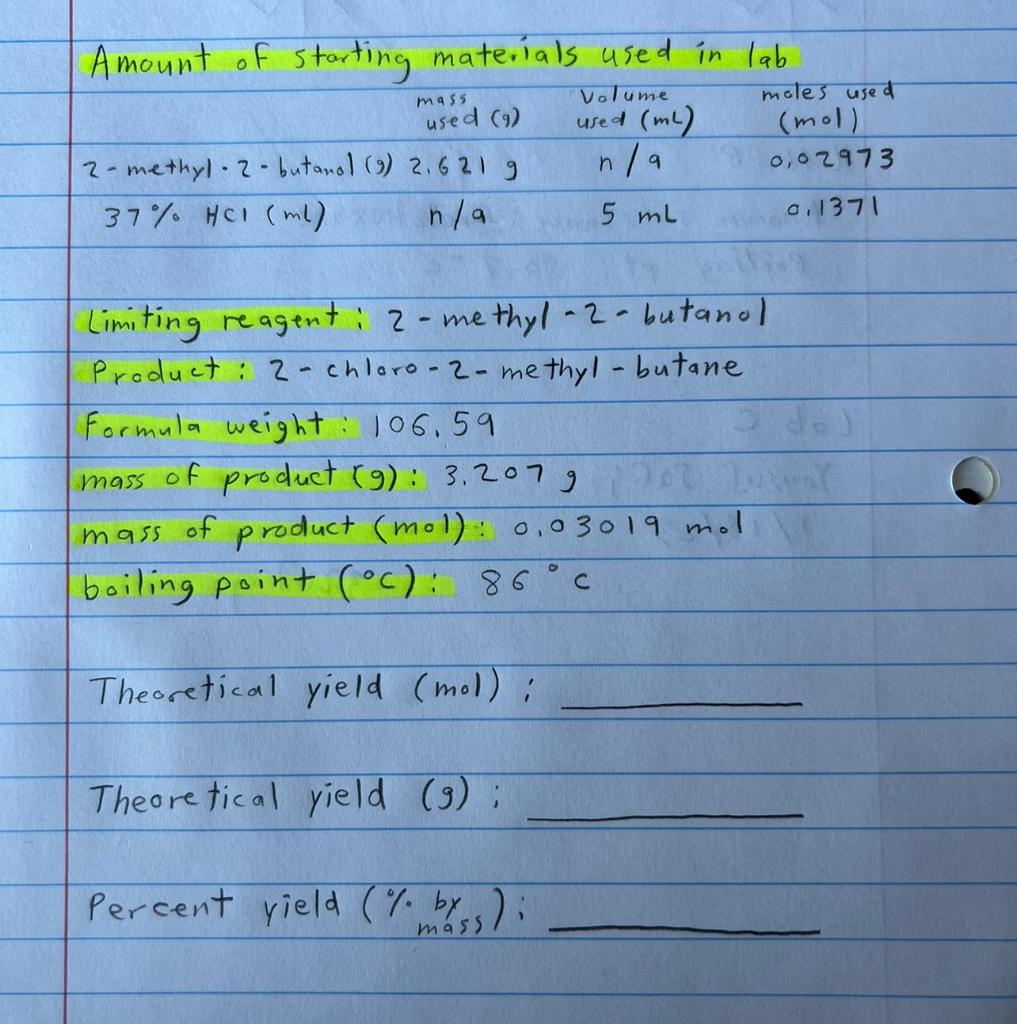 Amount of starting materials used in lab
mass used (g) Volume used (mL) moles used (mol)
2-methyl-2-butanol (g) 2.621 g n/a 0.02973
37% HCl (ml) n/a 5 mL 0.1371
Limiting reagent: 2-methyl-2-butanol
Product: 2-chloro-2-methyl-butane
Formula weight: 106.59
mass of product (g): 3.207 g
mass of product (mol): 0.03019 mol
boiling point (°C): 86 °C
Theoretical yield (mol):
Theoretical yield (g):
Percent yield (% by mass):